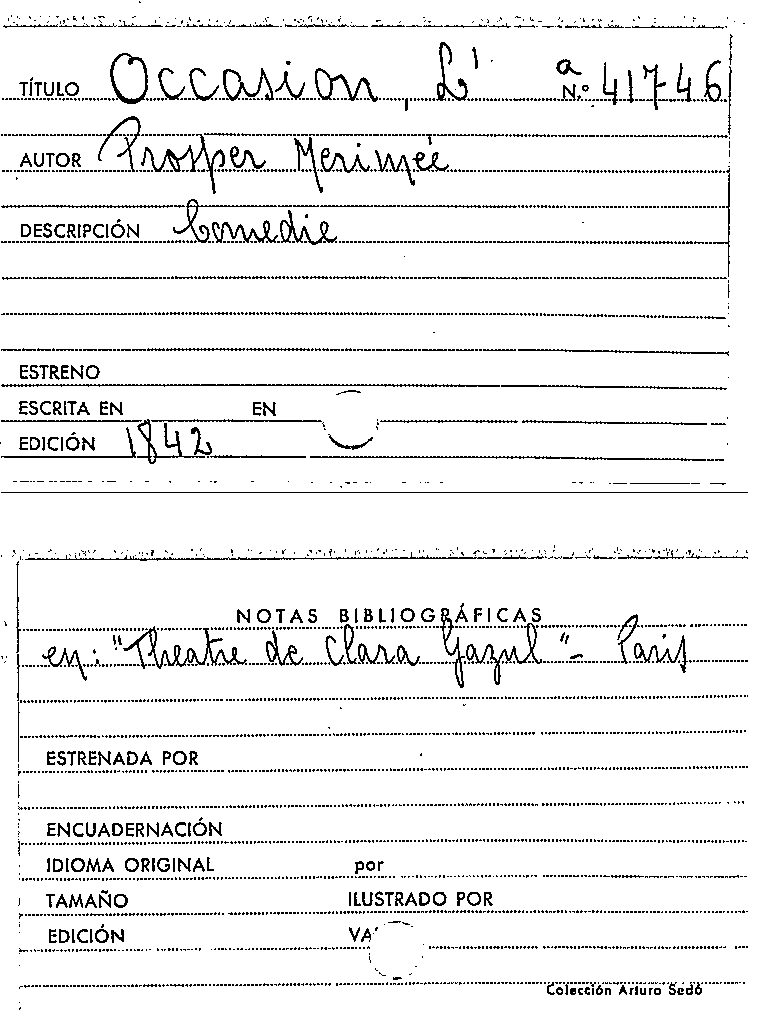 TÍTULO Occasion, L' a
N.º 41746
AUTOR Prosper Merimeé
DESCRIPCIÓN Comedie
ESTRENO
ESCRITA EN EN
EDICIÓN 1842
NOTAS BIBLIOGRÁFICAS
en: "Theatre de Clara Gazul" - Paris
ESTRENADA POR
ENCUADERNACIÓN
IDIOMA ORIGINAL por
TAMAÑO ILUSTRADO POR
EDICIÓN VA
Colección Arturo Sedó